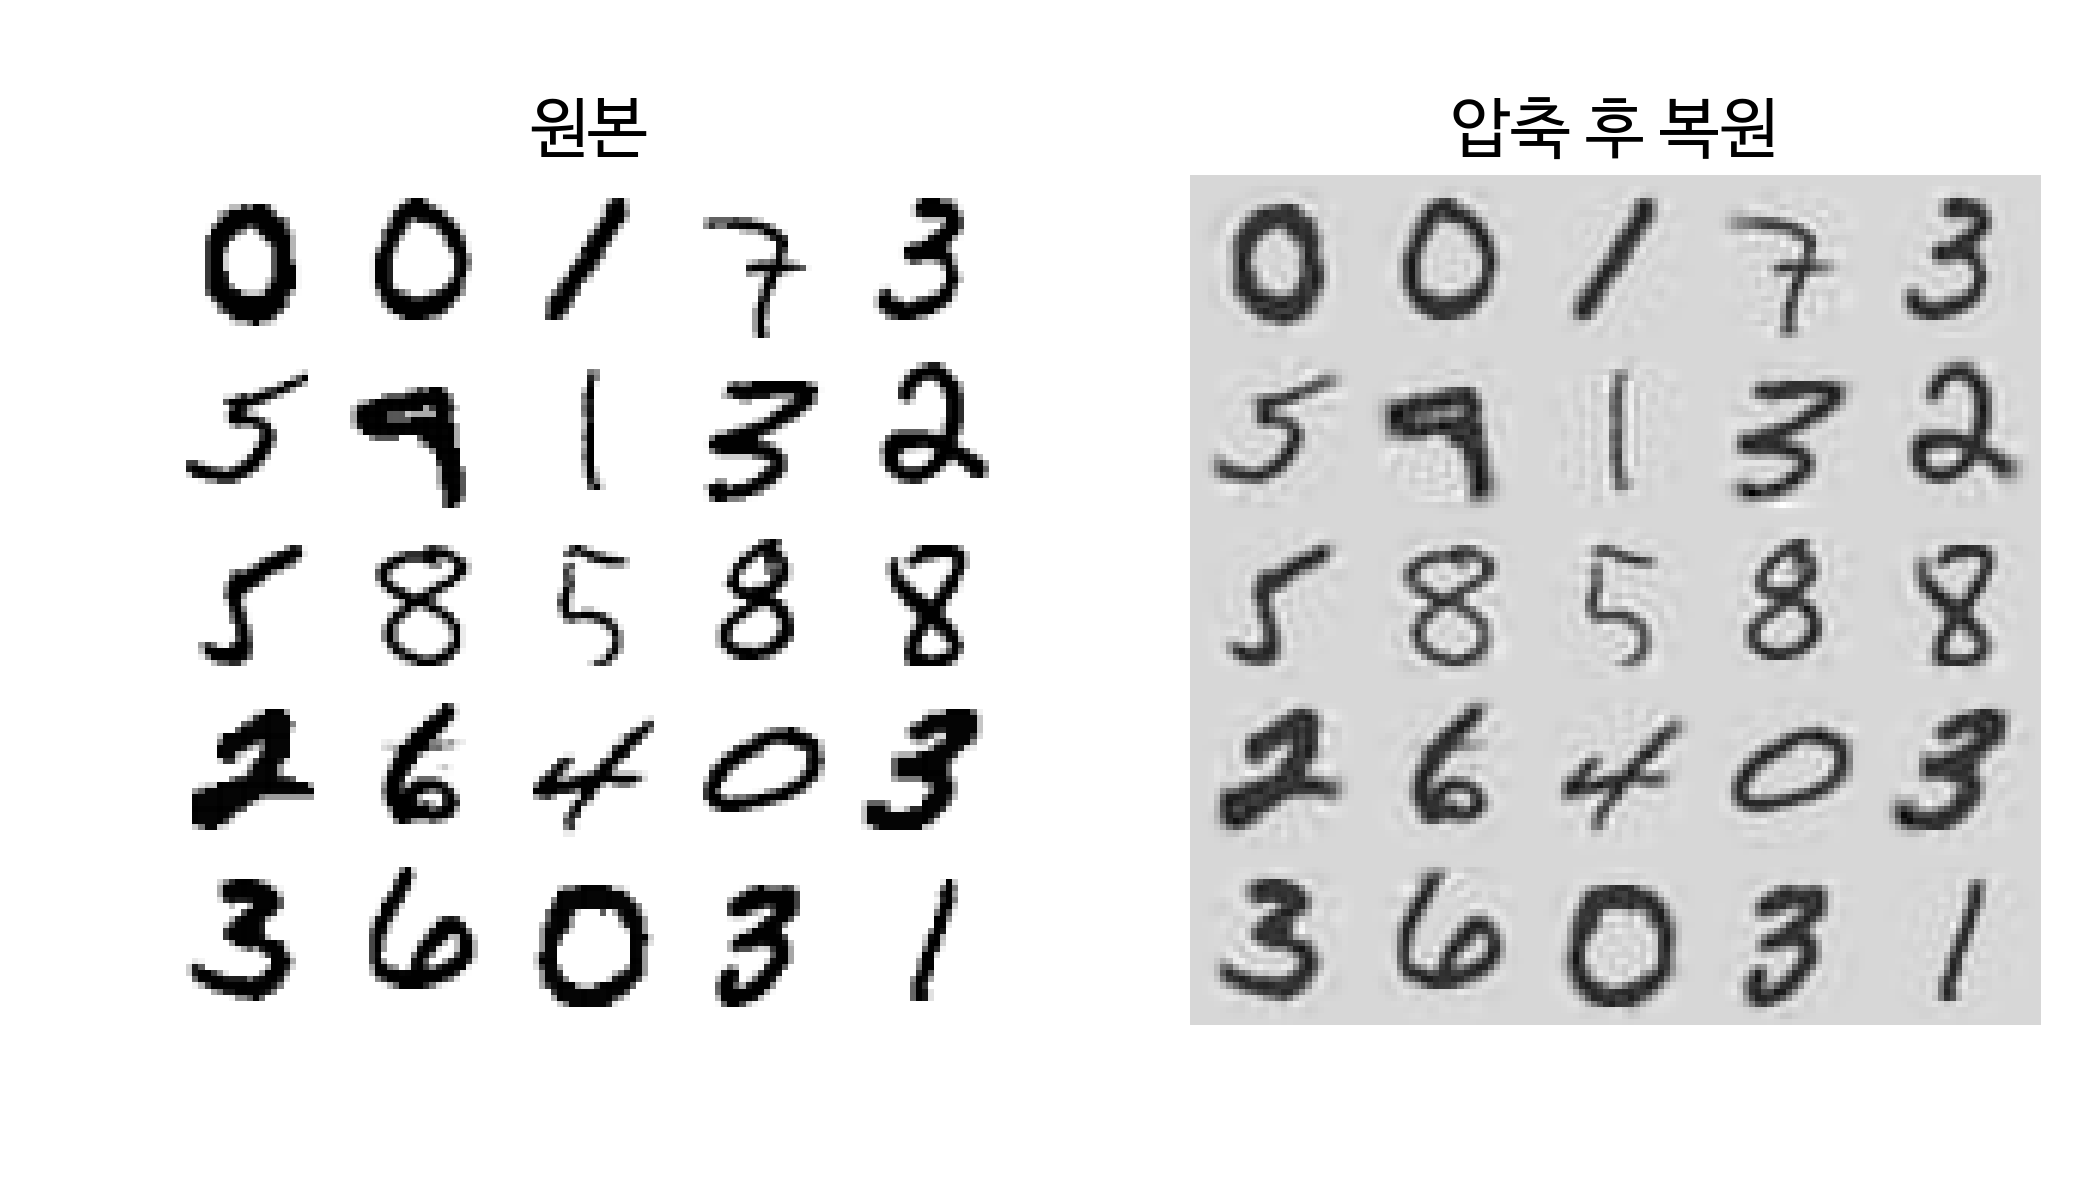 원본
0 0 1 7 3
5 9 1 3 2
5 8 5 8 8
2 6 4 0 3
3 6 0 3 1
압축 후 복원
0 0 1 7 3
5 9 1 3 2
5 8 5 8 8
2 6 4 0 3
3 6 0 3 1